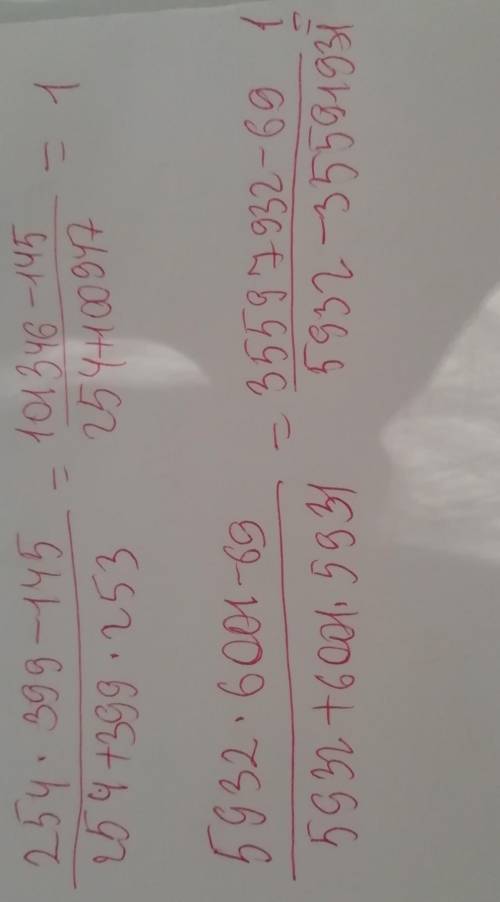 254 · 399 - 145 / 254 + 399 · 253 = 101346 - 145 / 254 + 100947 = 1
5932 · 6001 - 69 / 5932 + 6001 · 5931 = 35597932 - 69 / 5932 - 35591931 = 1